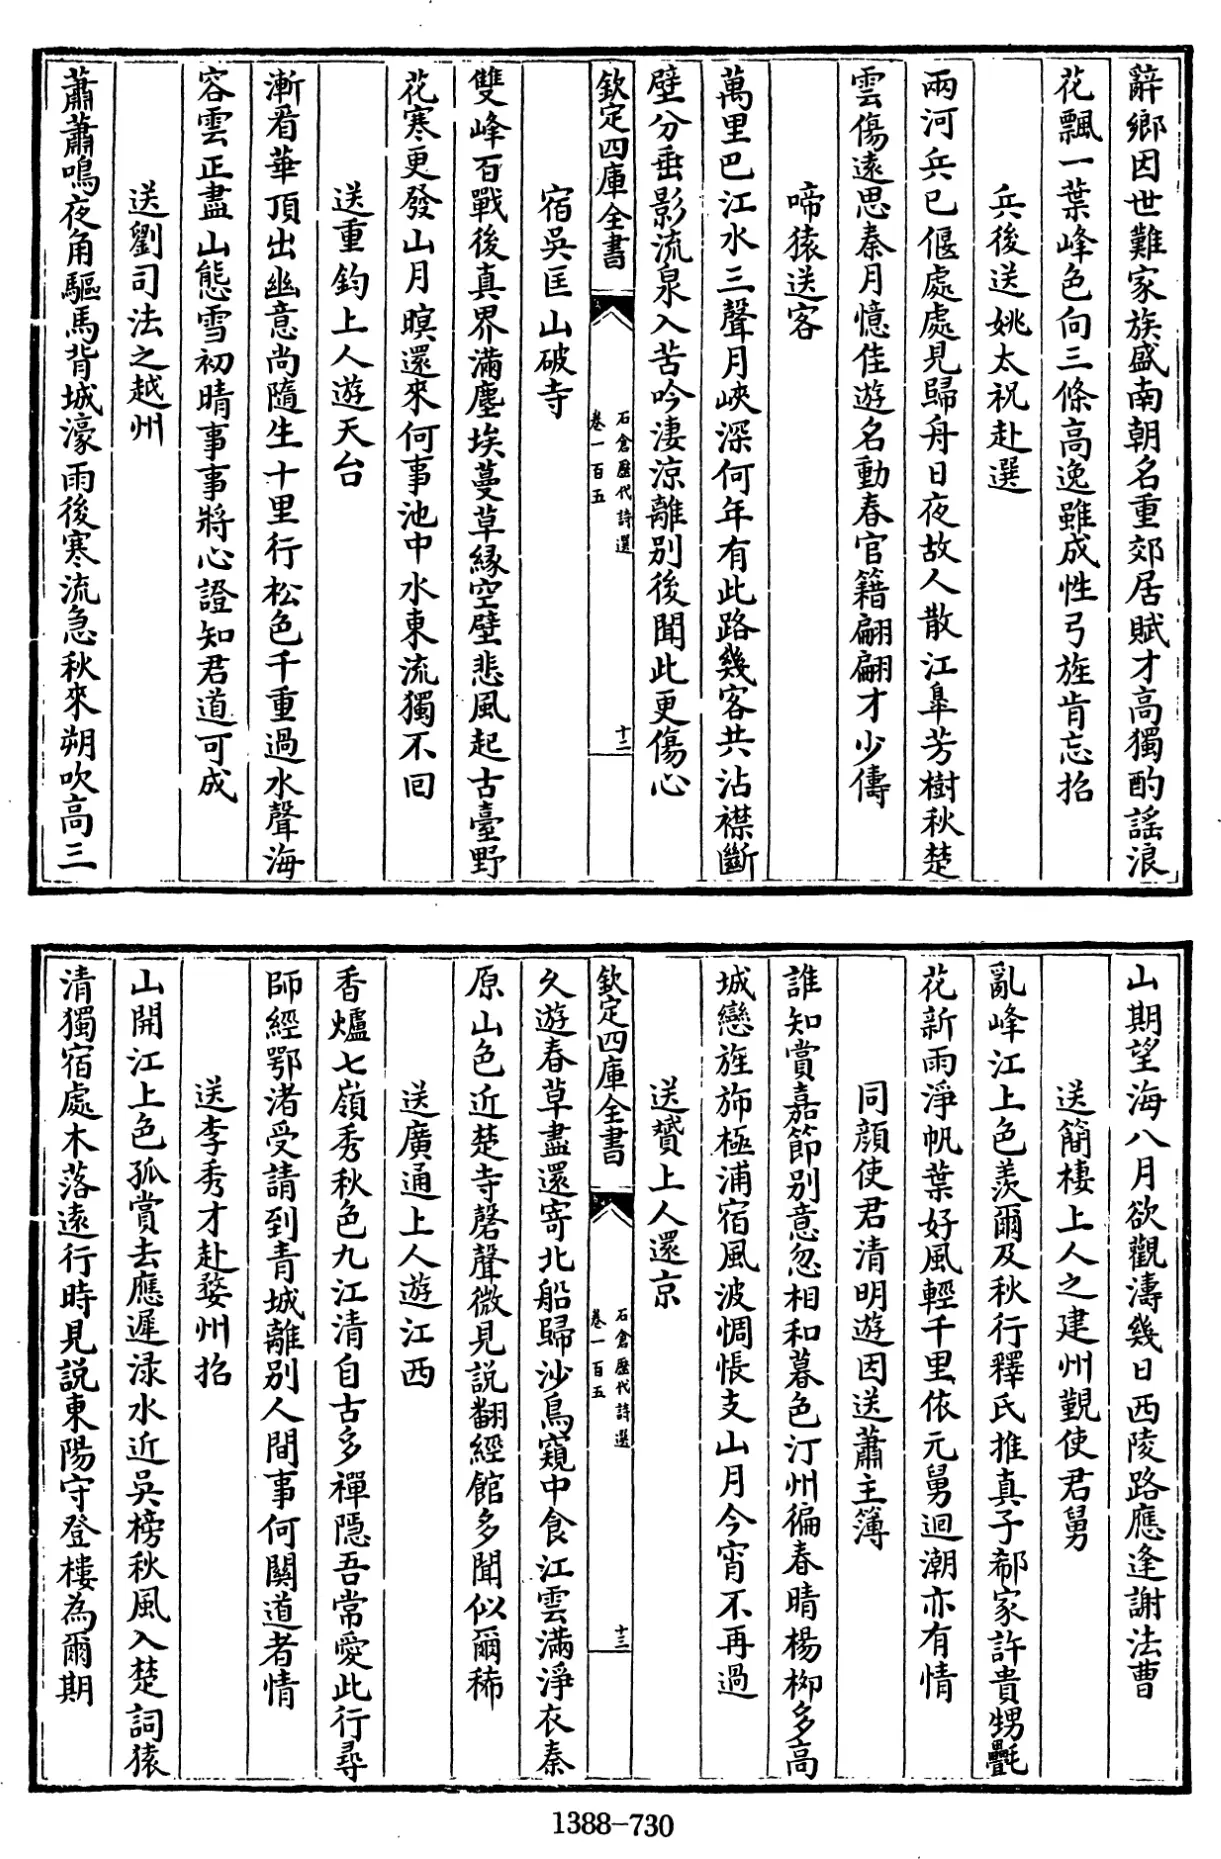 辭鄉因世難家族盛南朝名重郊居賦才高獨酌謡浪
花飄一葉峰色向三條高逸雖成性弓旌肯忘招
兵後送姚太祝赴選
兩河兵已偃處處見歸舟日夜故人散江臯芳樹秋楚
雲傷遠思秦月憶佳遊名動春官籍翩翩才少儔
啼猿送客
萬里巴江水三聲月峽深何年有此路幾客共沾襟斷
壁分垂影流泉入苦吟淒涼離別後聞此更傷心
欽定四庫全書
石倉歷代詩選
卷一百五
十二
宿吳匡山破寺
雙峰百戰後真界滿塵埃蔓草緣空壁悲風起古臺野
花寒更發山月暝還來何事池中水東流獨不回
送重鈞上人遊天台
漸看華頂出幽意尚隨生十里行松色千重過水聲海
容雲正盡山態雪初晴事事將心證知君道可成
送劉司法之越州
蕭蕭鳴夜角驅馬背城濠雨後寒流急秋來朔吹高三
山期望海八月欲觀濤幾日西陵路應逢謝法曹
送簡棲上人之建州覲使君舅
亂峰江上色羨爾及秋行釋氏推真子郗家許貴甥㲲
花新雨淨帆葉好風輕千里依元舅迴潮亦有情
同顔使君清明遊因送蕭主簿
誰知賞嘉節別意忽相和暮色汀州徧春晴楊柳多高
城戀旌斾極浦宿風波惆悵支山月今宵不再過
送贇上人還京
欽定四庫全書
石倉歷代詩選
卷一百五
十三
久遊春草盡還寄北船歸沙鳥窺中食江雲滿淨衣秦
原山色近楚寺磬聲微見說翻經館多聞似爾稀
送廣通上人遊江西
香爐七嶺秀秋色九江清自古多禪隱吾常愛此行尋
師經鄂渚受請到青城離別人間事何關道者情
送李秀才赴婺州招
山開江上色孤賞去應遲渌水近吳榜秋風入楚詞猿
清獨宿處木落遠行時見說東陽守登樓為爾期
1388-730